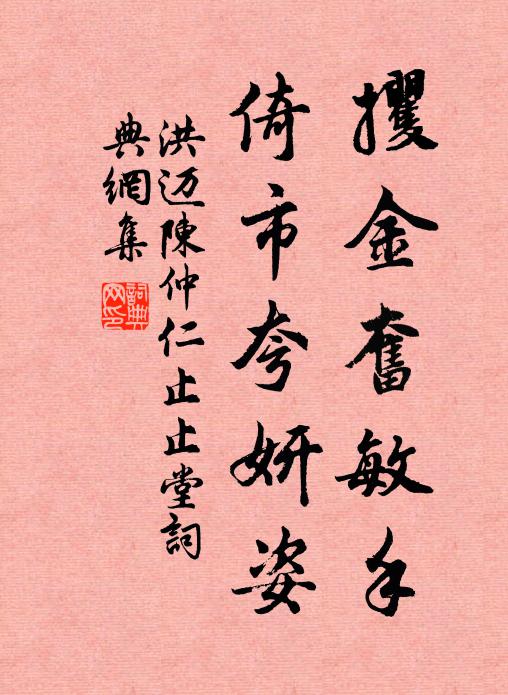 攫金奮敏手
倚市夸妍姿
洪迈陳仲仁止止堂詞
典網集
詞典網印